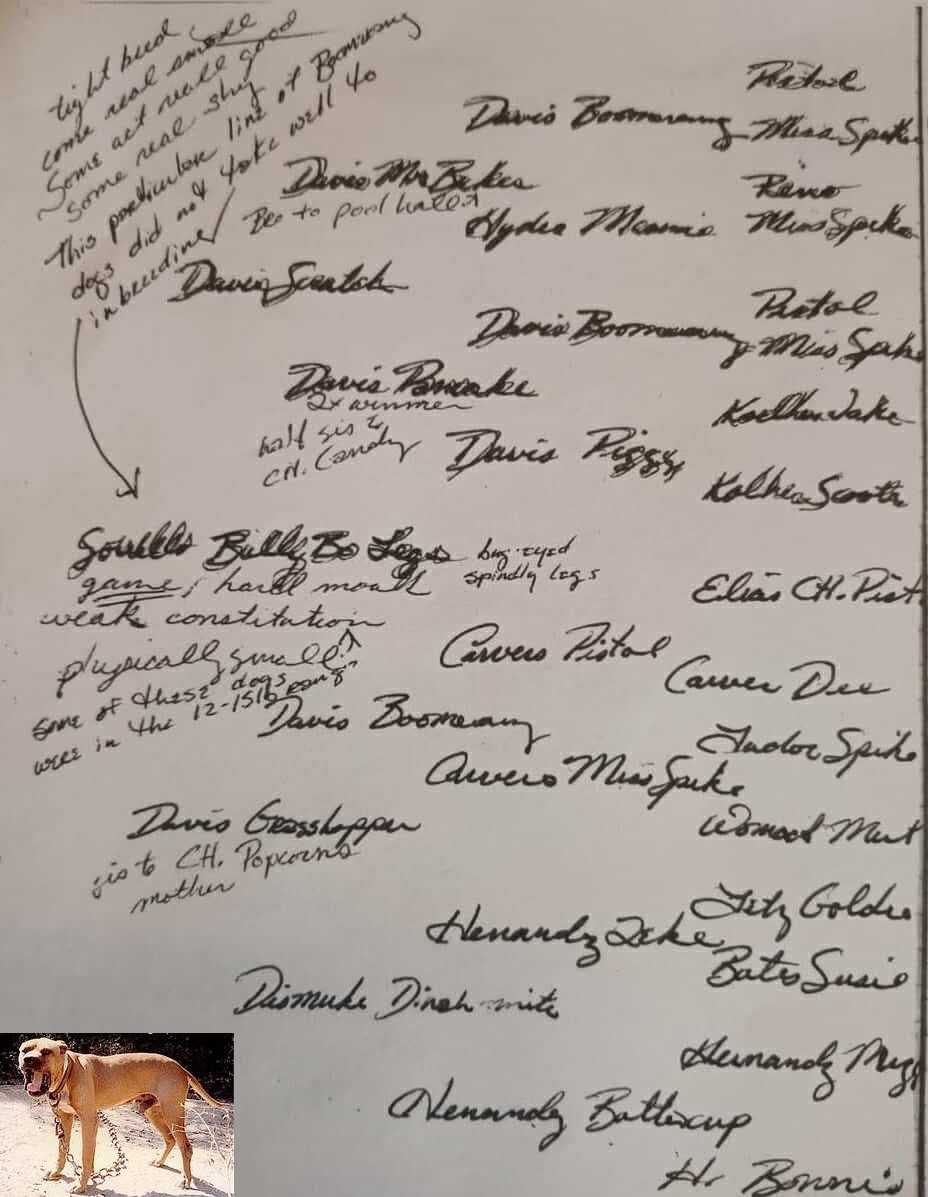 tight bred
come real small
Some act real good
some real shy
This particular line of Boomerang
dogs did not take well to
inbreeding
Pistol
Davis Boomerang
Miss Spike
Davis Mr Bakes
Bro to pool hall
Reno
Hydra Mamie
Miss Spike
Davis Scratch
Pistol
Davis Boomerang
Miss Spike
Davis Pancake
2x winner
half sis to
CH. Candy
Davis Piggy
Bully Bo Legs
bug-eyed
spindly legs
game, hard mouth
weak constitution
physically small
some of these dogs
were in the 12-15lb range
Elias CH. Pist
Carvers Pistol
Carver Dee
Davis Boomerang
Tudor Spike
Carvers Miss Spike
Womack Mert
Davis Grasshopper
sis to CH. Popcorns
mother
Fitz Goldie
Henandz Zeke
Bates Susie
Dismuke Dinah-mite
Hernandz
Henandz Buttercup
Hr Bonnie